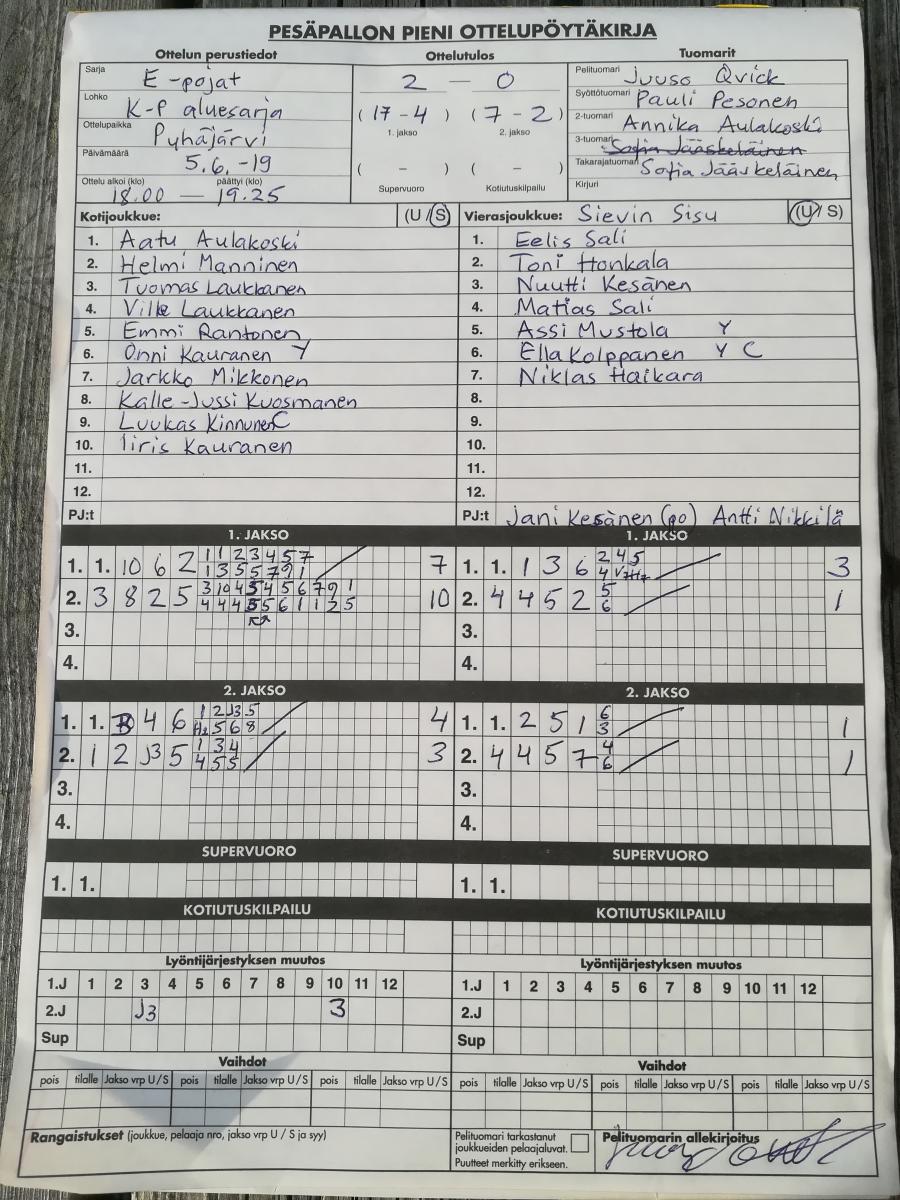 PESÄPALLON PIENI OTTELUPÖYTÄKIRJA
Ottelun perustiedot Ottelutulos Tuomarit
Sarja E-pojat
Lohko K-P aluesarja
Ottelupaikka Pyhäjärvi
Päivämäärä 5.6.-19
Ottelu alkoi (klo) päättyi (klo)
18.00 — 19.25
2 — 0
( 17 - 4 ) ( 7 - 2 )
1. jakso 2. jakso
( - ) ( - )
Supervuoro Kotiutuskilpailu
Pelituomari Juuso Qvick
Syöttötuomari Pauli Pesonen
2-tuomari Annika Aulakoski
3-tuomari Sofia Jääskeläinen
Takarajatuomari Sofia Jääskeläinen
Kirjuri
Kotijoukkue: (U / S)
1. Aatu Aulakoski
2. Helmi Manninen
3. Tuomas Laukkanen
4. Ville Laukkanen
5. Emmi Rantonen
6. Onni Kauranen Y
7. Jarkko Mikkonen
8. Kalle-Jussi Kuosmanen
9. Luukas Kinnunen C
10. Iiris Kauranen
11.
12.
PJ:t
Vierasjoukkue: Sievin Sisu (U / S)
1. Eelis Sali
2. Toni Honkala
3. Nuutti Kesänen
4. Matias Sali
5. Assi Mustola Y
6. Ella Kolppanen Y C
7. Niklas Haikara
8.
9.
10.
11.
12.
PJ:t Jani Kesänen (po) Antti Nikkilä
1. JAKSO 1. JAKSO
1. 1. 10 6 2 7
2. 3 8 2 5 10
3.
4.
1. 1. 1 3 6 3
2. 4 4 5 2 5 6 1
3.
4.
2. JAKSO 2. JAKSO
1. 1. 4 6 4
2. 1 2 J3 5 3
3.
4.
1. 1. 2 5 1 6 3 1
2. 4 4 5 7 4 6 1
3.
4.
SUPERVUORO SUPERVUORO
1. 1. 1. 1.
KOTIUTUSKILPAILU KOTIUTUSKILPAILU
Lyöntijärjestyksen muutos Lyöntijärjestyksen muutos
1.J 1 2 3 4 5 6 7 8 9 10 11 12
2.J J3 3
Sup
1.J 1 2 3 4 5 6 7 8 9 10 11 12
2.J
Sup
Vaihdot Vaihdot
pois tilalle Jakso vrp U / S pois tilalle Jakso vrp U / S pois tilalle Jakso vrp U / S
pois tilalle Jakso vrp U / S pois tilalle Jakso vrp U / S pois tilalle Jakso vrp U / S
Rangaistukset (joukkue, pelaaja nro, jakso vrp U / S ja syy)
Pelituomari tarkastanut
joukkueiden pelaajaluvat.
Puutteet merkitty erikseen.
Pelituomarin allekirjoitus